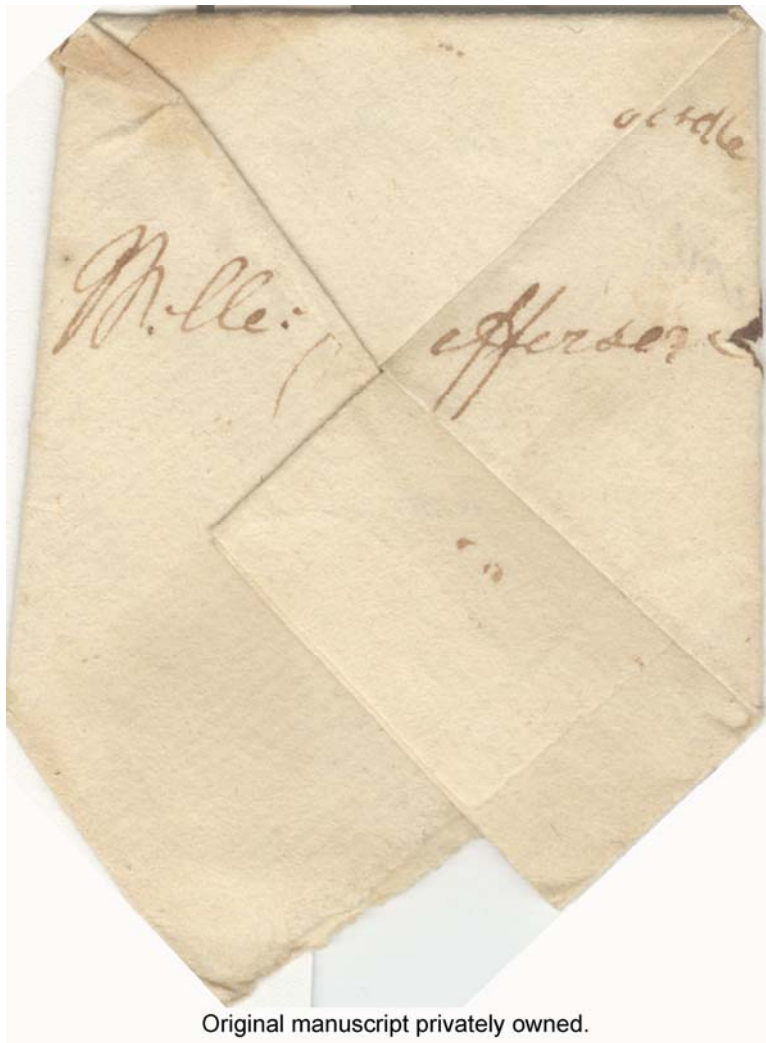 M.lle: efferson
Original manuscript privately owned.